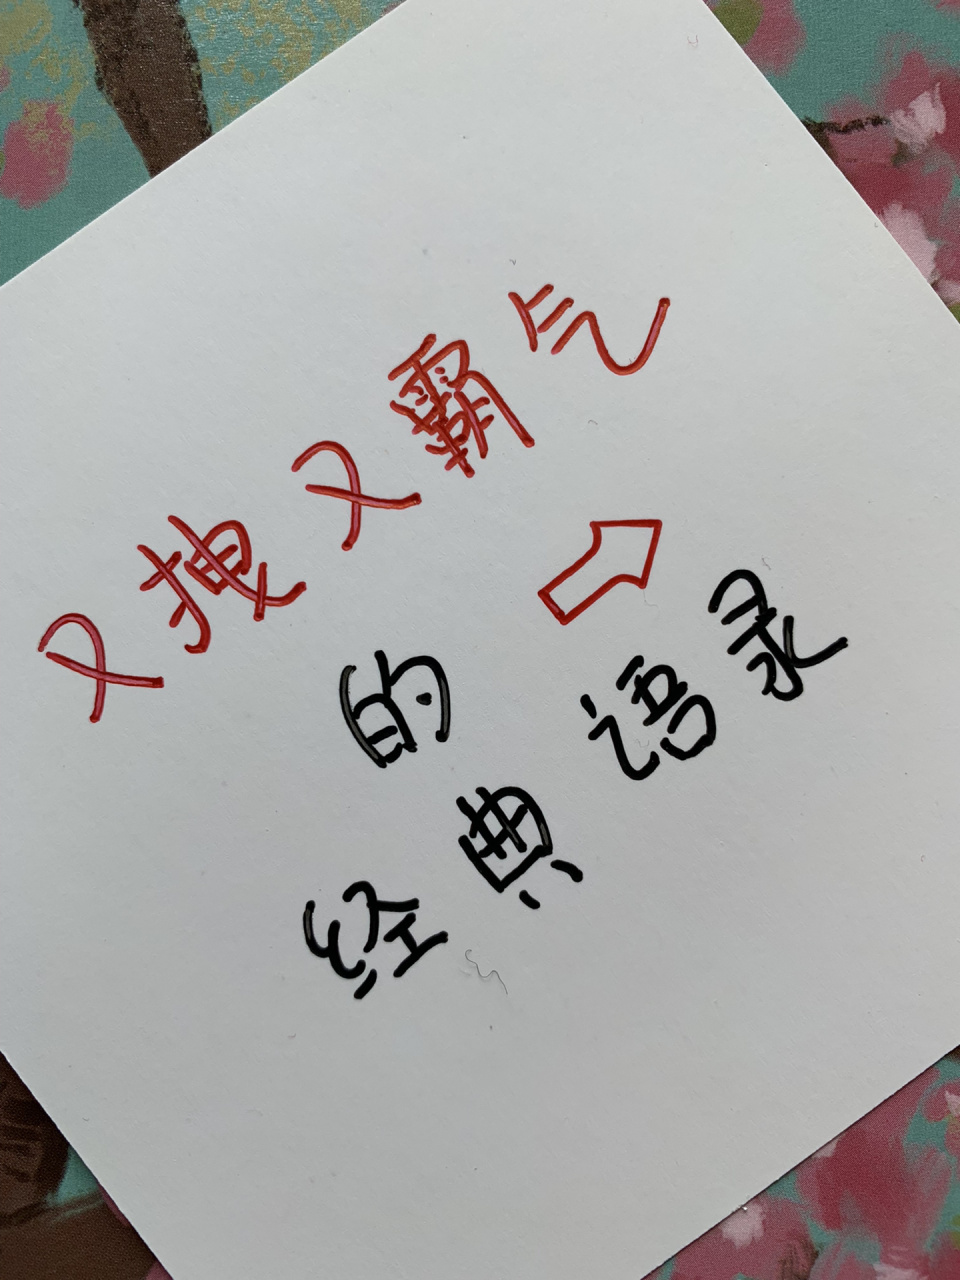 又拽又霸气
的
经典语录